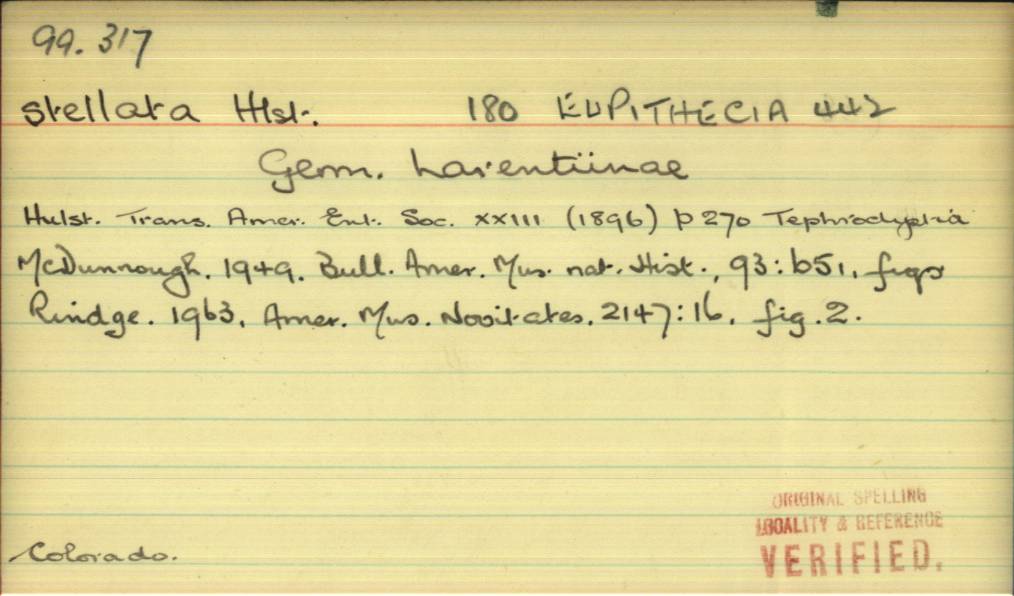 99.317
stellata Hlst. 180 EUPITHECIA 442
Geom. Larentiinae
Hulst. Trans. Amer. Ent. Soc. XXIII (1896) p 270 Tephroclystia
McDunnough. 1949. Bull. Amer. Mus. nat. Hist., 93:651, figs
Rindge. 1963. Amer. Mus. Novitates. 2147:16. fig. 2.
Colorado.
ORIGINAL SPELLING
LOCALITY & REFERENCE
VERIFIED.